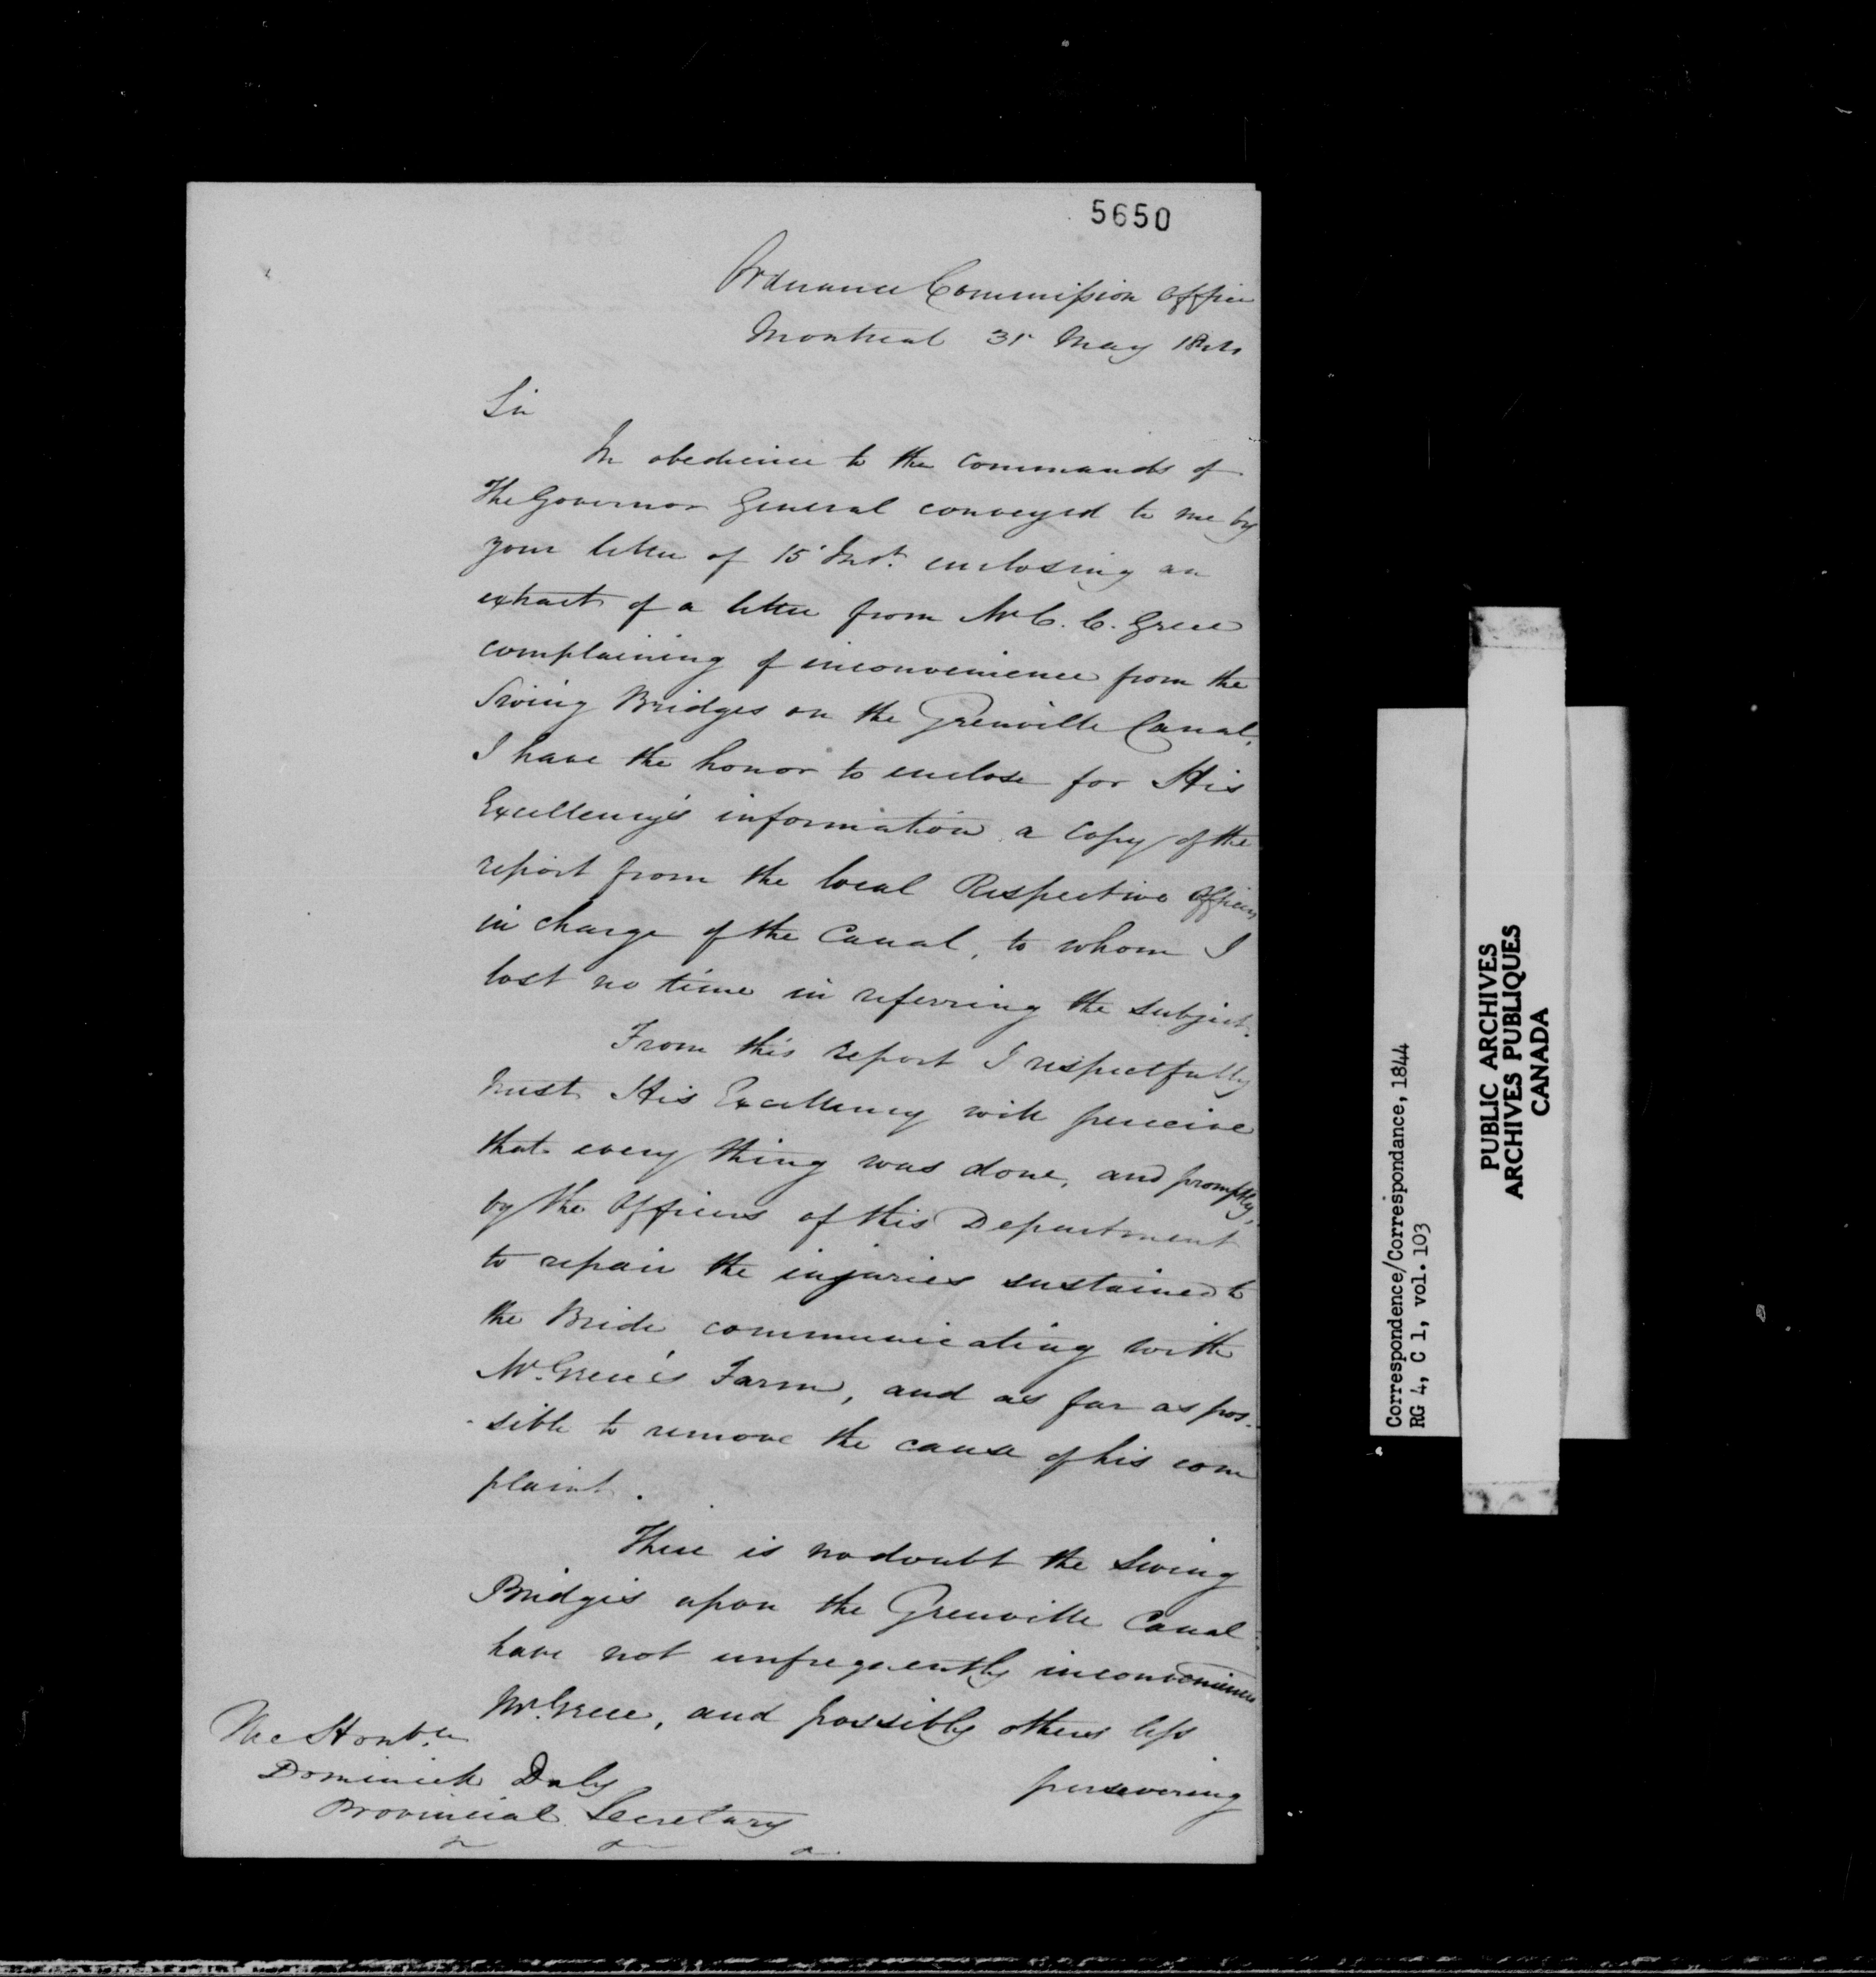 5650
Ordnance Commission Office
Montreal 31 May 1844
Sir
In obedience to the commands of
The Governor General conveyed to me by
your letter of 15 Inst. enclosing an
extract of a letter from Mr C. C. Grece
complaining of inconvenience from the
Swing Bridges on the Grenville Canal,
I have the honor to enclose for His
Excellency's information a Copy of the
report from the local Respective Officers
in charge of the Canal, to whom I
lost no time in referring the subject.
From this report I respectfully
trust His Excellency will perceive
that every thing was done, and promptly,
by the Officers of this Department
to repair the injuries sustained to
the Bride communicating with
Mr. Grece's Farm, and as far as pos-
-sible to remove the cause of his com
plaint.
There is no doubt the Swing
Bridges upon the Grenville Canal
have not unfrequently inconvenienced
Mr. Grece, and possibly others less
persevering
The Honble
Dominick Daly
Provincial Secretary
Correspondence/Correspondance, 1844
RG 4, C 1, vol. 103
PUBLIC ARCHIVES
ARCHIVES PUBLIQUES
CANADA